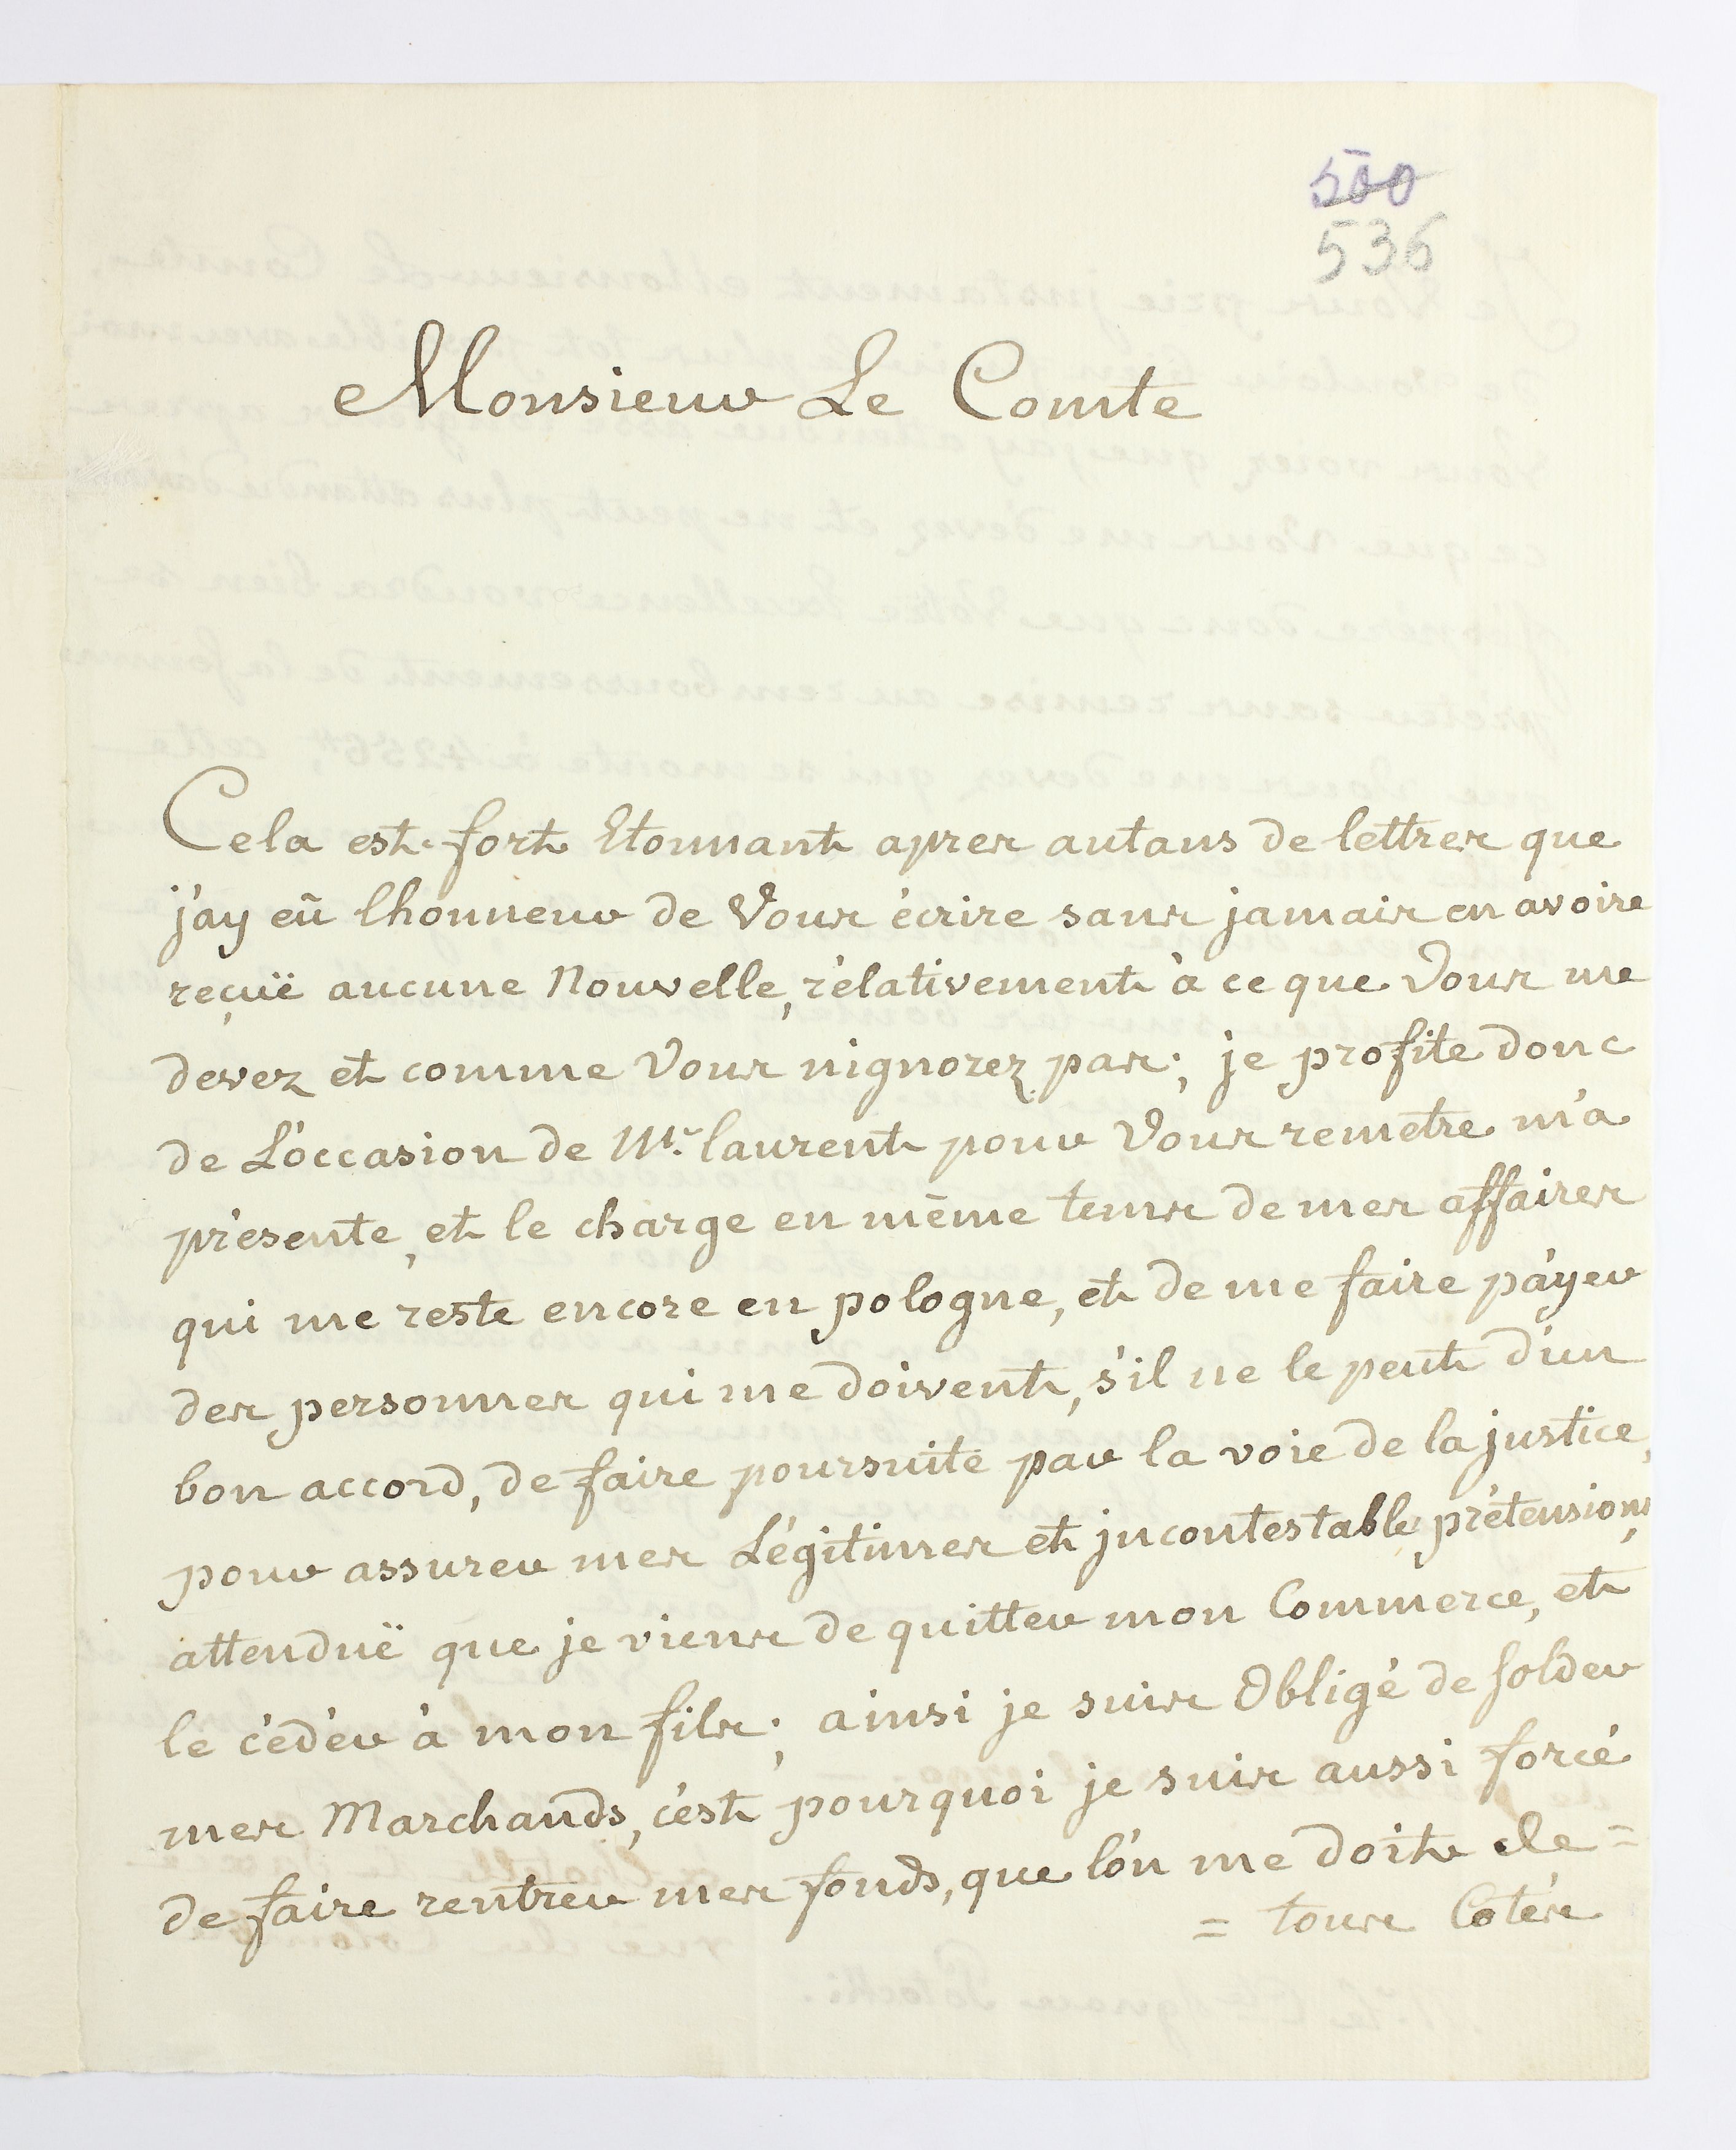 500
536
Monsieur Le Comte
Cela est fort Etonnant apres autans de lettres que
j'ay eû lhonneur de Vous écrire sans jamais en avoire
reçuë aucune Nouvelle, rélativement à ce que Vous me
devez et comme Vous nignorez pas; je profite donc
de L'óccasion de Mr. laurent pour Vous remetre m'a
présente, et le charge en même tems de mes affaires
qui me reste encore en pologne, et de me faire páyer
des personnes qui me doivent, s'il ne le peut d'un
bon accord, de faire poursuite par la voie de la justice,
pour assurer mes Légitimes et jncontestable, prétensions,
attenduë que je viens de quitter mon Commerce, et
le cédér à mon fils; ainsi je suis Obligé de solder
mes Marchands, c'est pourquoi je suis aussi forcé
de faire rentrer mes fonds, que l'ón me doit de =
= tous Cotés